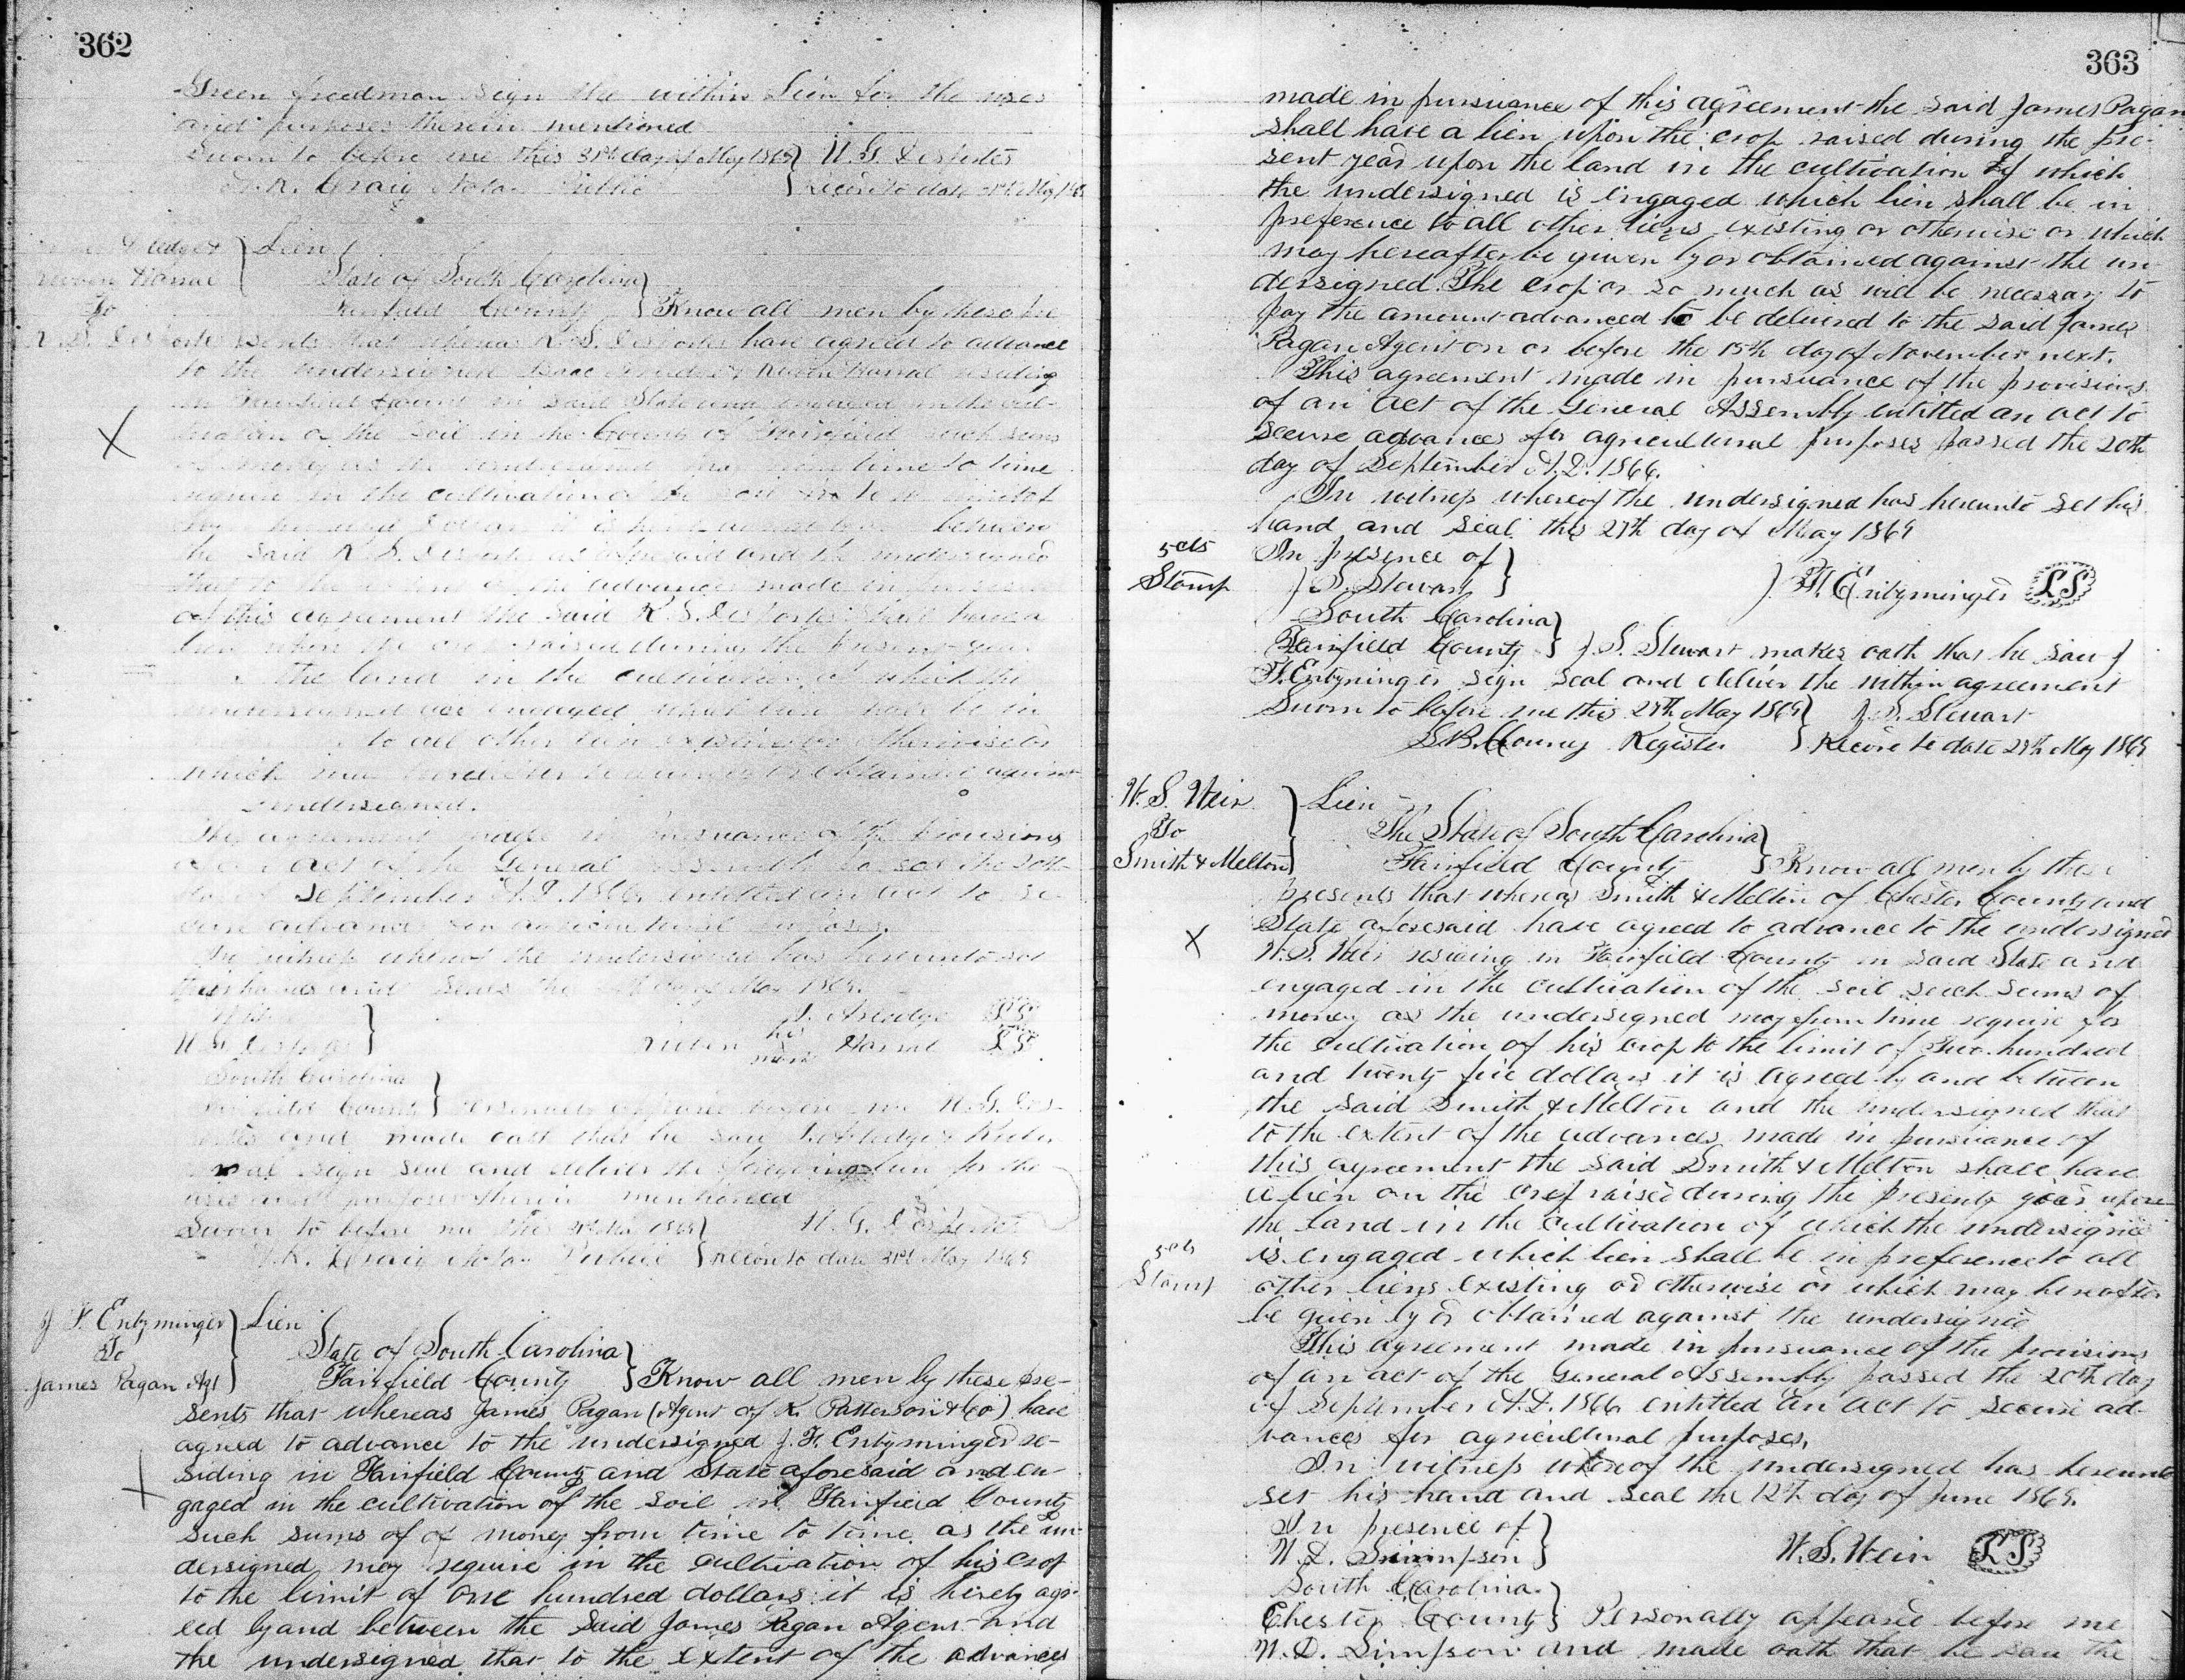 362
Green freedman sign the within Lien for the uses
and purposes therein mentioned
Sworn to before me this 31st day of May 1869 } W. G.
Craig Notary Public } Record to date 31st May 1869
Lien
State of South Carolina }
To
County } Know all men by these pre
sents that whereas R. S. Desportes have agreed to advance
to the undersigned Isaac & residing
in County in said State and engaged in the cul-
tivation of the soil in the County of Fairfield such sums
of money as the undersigned may from time to time
require in the cultivation of the soil
hundred dollars it is between
the said R. S. Desportes as aforesaid and the undersigned
that to the extent of the advances made in
of this agreement the said R. S. Desportes shall have a
lien upon the crop raised during the present year
the land in the cultivation of which the
undersigned are engaged which lien shall be in
to all other liens existing or otherwise or
which may hereafter be given by or obtained against
undersigned.
This agreement made in pursuance of the provisions
of an act of the General Assembly passed the 20th
day of September A.D. 1866 entitled an act to se-
cure advances for agricultural purposes.
In witness whereof the undersigned has hereunto set
their hands and seals the day of May 1869.
his
mark
South Carolina
County } Personally appeared before me W. G. Des-
portes and made oath that he saw
sign seal and deliver the foregoing lien for the
uses and purposes therein mentioned
Sworn to before me this 1869 } W. G. Desportes
Craig Notary Public } Record to date 31st May 1869
J. F. Entzminger } Lien
To
State of South Carolina }
James Pagan Agt }
Fairfield County } Know all men by these pre-
sents that whereas James Pagan (Agent of R. Patterson & Co) have
agreed to advance to the undersigned J. F. Entzminger re-
siding in Fairfield County and State aforesaid and en-
gaged in the cultivation of the soil in Fairfield County
such sums of of money from time to time as the un-
dersigned may require in the cultivation of his crop
to the limit of one hundred dollars it is hereby agr-
eed by and between the said James Pagan Agent and
the undersigned that to the extent of the advances
363
made in pursuance of this agreement the said James Pagan
shall have a lien upon the crop raised during the pre-
sent year upon the land in the cultivation of which
the undersigned is engaged which lien shall be in
preference to all other liens existing or otherwise or which
may hereafter be given by or obtained against the un-
dersigned. The crop or so much as will be necessary to
pay the amount advanced to be delivered to the said James
Pagan Agent on or before the 15th day of November next.
This agreement made in pursuance of the provisions
of an act of the General Assembly entitled an act to
secure advances for agricultural purposes passed the 20th
day of September A.D. 1866.
In witness whereof the undersigned has hereunto set his
hand and seal this 27th day of May 1869
5cts
Stamp
In presence of }
J. S. Stewart }
J. F. Entzminger LS
South Carolina }
Fairfield County } J. S. Stewart makes oath that he saw J
F. Entzminger sign seal and deliver the within agreement
Sworn to before me this 27th May 1869 } J. S. Stewart
S. B. Clowney Register } Record to date 27th May 1869
W. S. Weir } Lien
To
The State of South Carolina }
Smith & Melton }
Fairfield County } Know all men by these
presents that whereas Smith & Melton of Chester County and
State aforesaid have agreed to advance to the undersigned
W. S. Weir residing in Fairfield County in said State and
engaged in the cultivation of the soil such sums of
money as the undersigned may from time require for
the cultivation of his crop to the limit of Two hundred
and twenty five dollars it is agreed by and between
the said Smith & Melton and the undersigned that
to the extent of the advances made in pursuance of
this agreement the said Smith & Melton shall have
a lien on the crop raised during the present year upon
the land in the cultivation of which the undersigned
is engaged which lien shall be in preference to all
5cts
Stamp
other liens existing or otherwise or which may hereafter
be given by or obtained against the undersigned
This agreement made in pursuance of the provisions
of an act of the General Assembly passed the 20th day
of September A.D. 1866 entitled an act to secure ad-
vances for agricultural purposes.
In witness whereof the undersigned has hereunto
set his hand and seal the 12th day of June 1869.
In presence of }
W. D. Simmpson }
W. S. Weir LS
South Carolina }
Chester County } Personally appeared before me
W. D. Simpson and made oath that he saw the